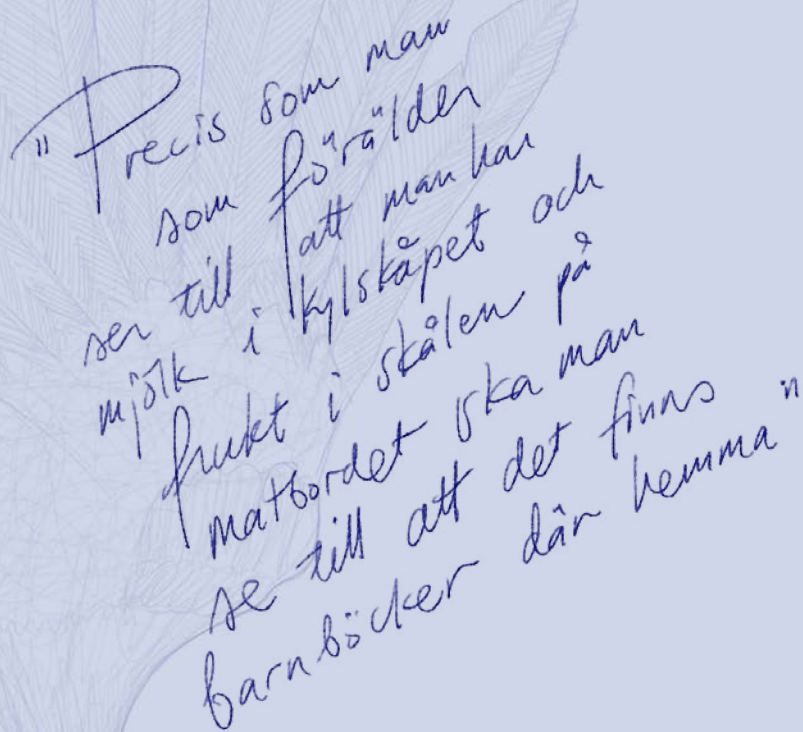 "Precis som man
som förälder
ser till att man har
mjölk i kylskåpet och
frukt i skålen på
matbordet ska man
se till att det finns
barnböcker där hemma"